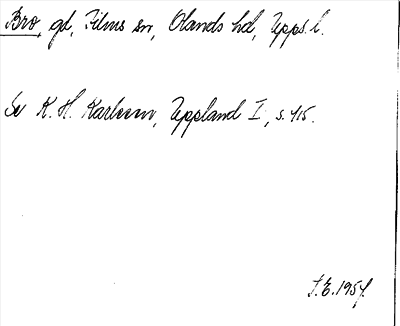 Bro, gd, Films sn, Olands hd, Upps. l.
Se K. H. Karlsson, Uppland I, s. 415.
J. E. 1957.